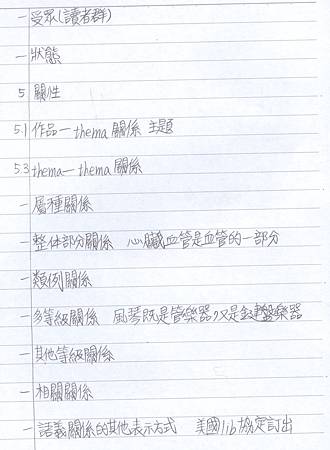 一 受眾(讀者群)
一 狀態
5 關性
5.1 作品一 thema 關係 主題
5.3 thema一 thema 關係
一 屬種關係
一 整体部分關係 心臟血管是血管的一部分
一 類例關係
一 多等級關係 風琴既是管樂器,又是鍵盤樂器
一 其他等級關係
一 相關關係
一 語義關係的其他表示方式 美國lib 檢定訂出